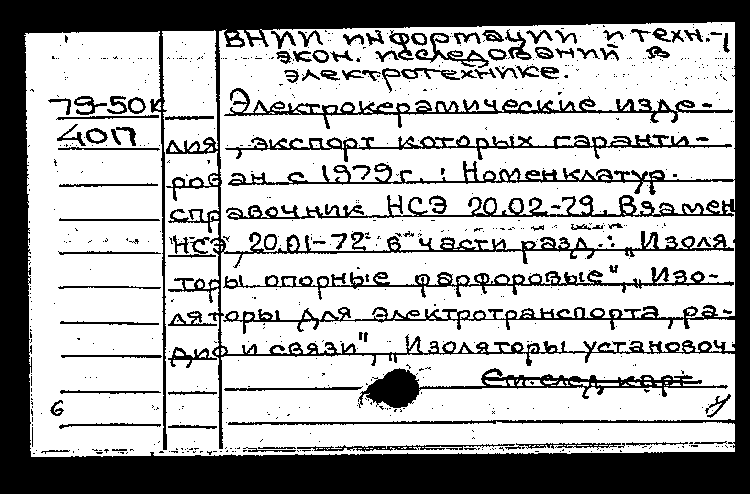 ВНИИ информации и техн.-
экон. исследований в
электротехнике.
79-50к Электрокерамические изде-
40П лия, экспорт которых гаранти-
рован с 1979г.: Номенклатур.
справочник НСЭ 20.02-79. Взамен
НСЭ 20.01-72 в части разд.: „Изоля-
торы опорные фарфоровые", „Изо-
ляторы для электротранспорта, ра-
дио и связи", „Изоляторы установоч-
См. след. карт
6